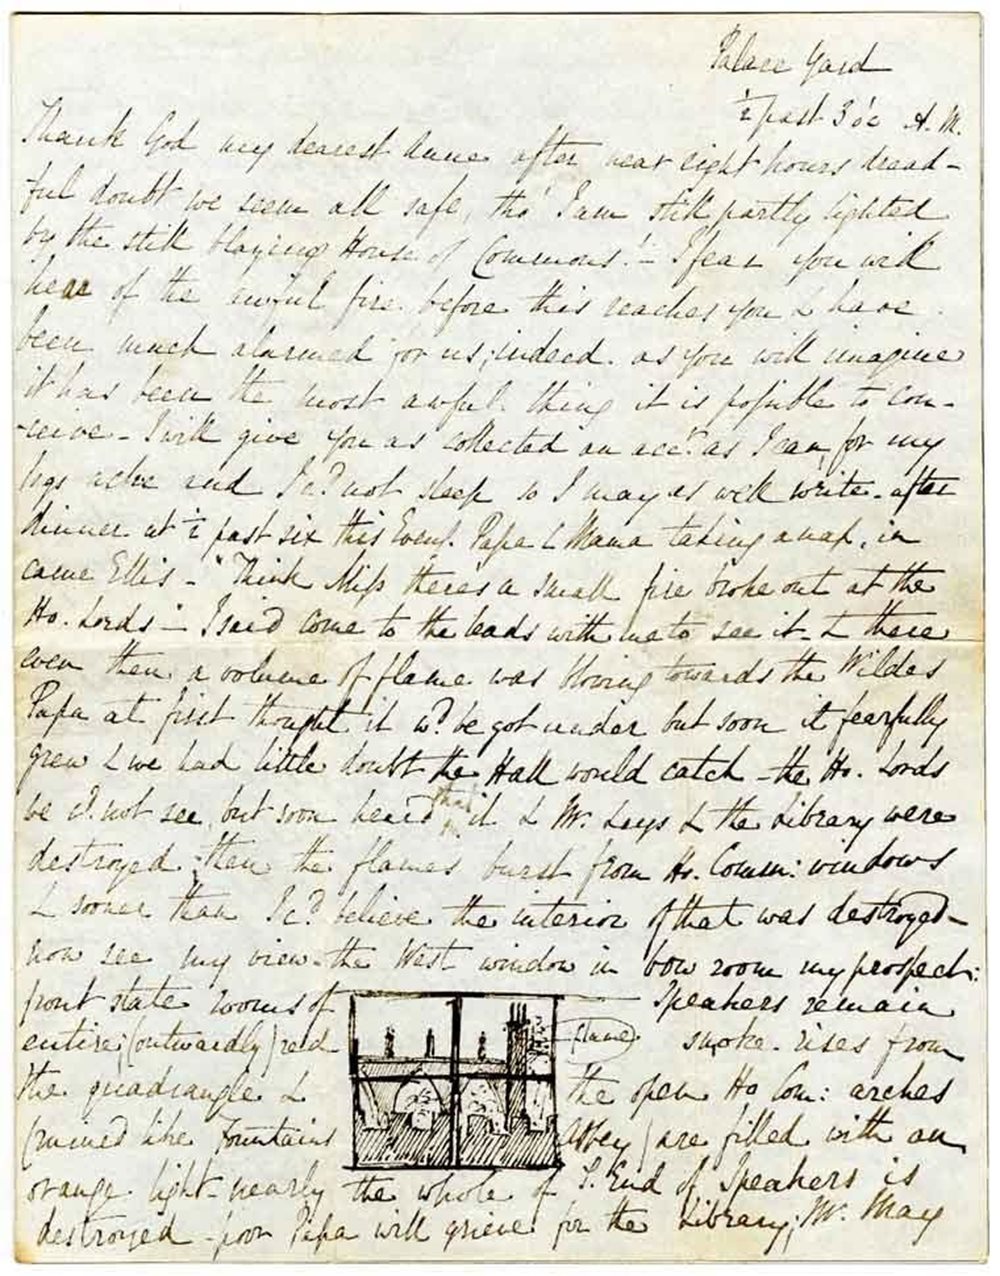 Palace Yard
½ past 3 'c A.M.
Thank God my dearest Anne after near eight hours dread-
ful doubt we seem all safe, tho' I am still partly lighted
by the still blazing House of Commons! – I fear you will
hear of the awful fire before this reaches you & have
been much alarmed for us; indeed as you will imagine
it has been the most awful thing it is possible to con-
-ceive – I will give you as collected an acct. as I can, for my
legs ache and I cd. not sleep so I may as well write – after
dinner at ½ past six this Eveng. Papa & Mama taking a nap, in
came Ellis – "Think Miss theres a small fire broke out at the
Ho. Lords" – I said come to the leads with me to see it – & there
even then a volume of flame was blowing towards the Wildes
Papa at first thought it wd. be got under but soon it fearfully
grew & we had little doubt the Hall would catch – the Ho. Lords
we cd. not see, but soon heard that it & Mr. Leys & the Library were
destroyed; then the flames burst from Ho. Comm: windows
& sooner than I cd. believe the interior of that was destroyed –
now see my view – the West window in bow room my prospect:
front state rooms of Speakers remain
entire; (outwardly) red flame smoke rises from
the quadrangle & the open Ho Com: arches
(ruined like Fountains Abbey) are filled with an
orange light – nearly the whole of S. End of Speakers is
destroyed – poor Papa will grieve for the Library; Mr. May